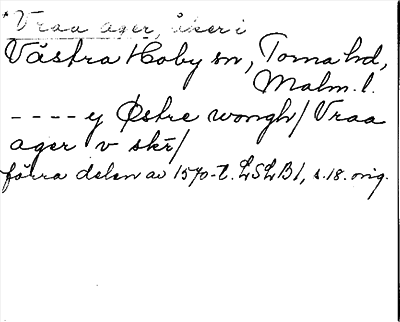 *Vraa ager, åker i
Västra Hoby sn, Torna hd,
Malm. l.
- - - - y Østre wongh/ Vraa
ager v skr/
förra delen av 1570-t. LSLB1, s. 18. orig.